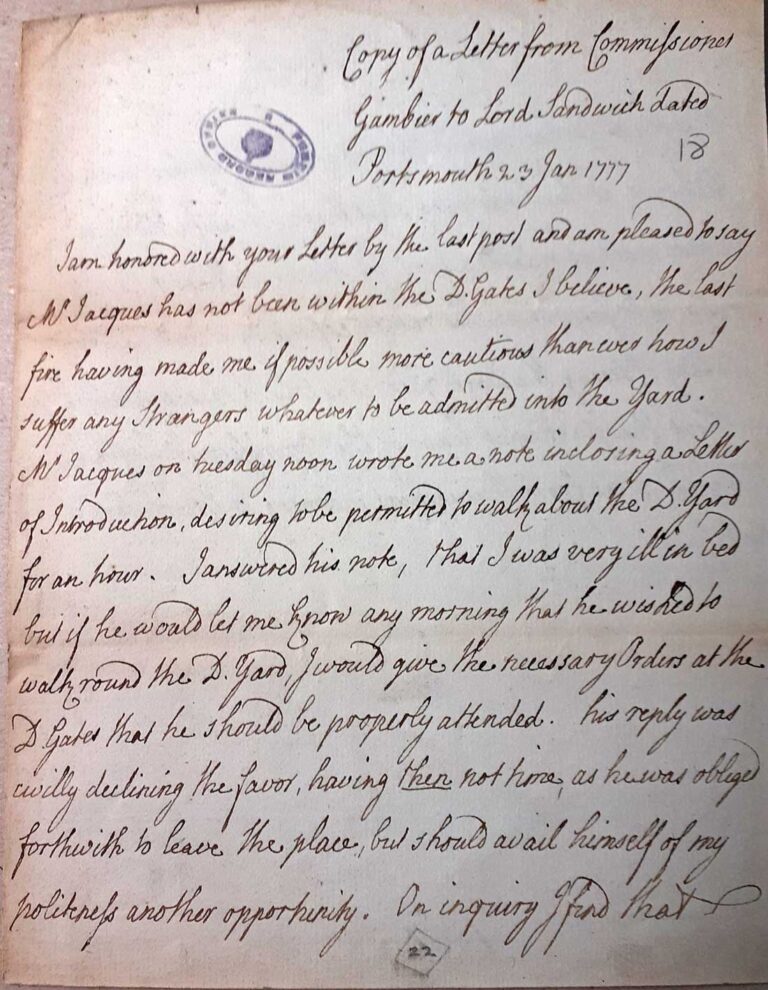 Copy of a Letter from Commissioner
Gambier to Lord Sandwich dated
Portsmouth 23 Jan 1777
18
PUBLIC RECORD OFFICE
I am honored with your Letter by the last post and am pleased to say
Mr Jacques has not been within the D. Gates I believe, the last
fire having made me if possible more cautious than ever how I
suffer any Strangers whatever to be admitted into the Yard.
Mr Jacques on tuesday noon wrote me a note inclosing a Letter
of Introduction, desiring to be permitted to walk about the D. Yard
for an hour. I answered his note, that I was very ill in bed
but if he would let me know any morning that he wished to
walk round the D. Yard, I would give the necessary Orders at the
D. Gates that he should be properly attended. his reply was
civilly declining the favor, having then not time, as he was obliged
forthwith to leave the place, but should avail himself of my
politeness another opportunity. On inquiry I find that
22